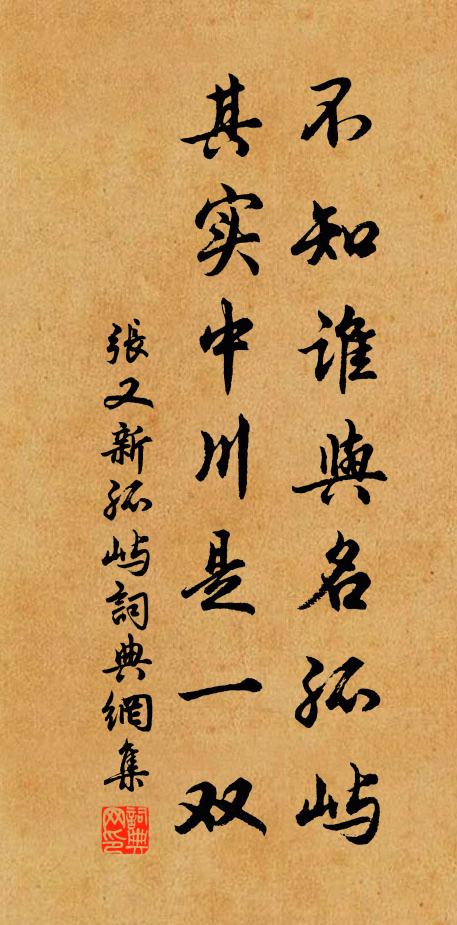 不知谁與名孤屿
其实中川是一双
張又新孤屿詞典網集
詞典网印